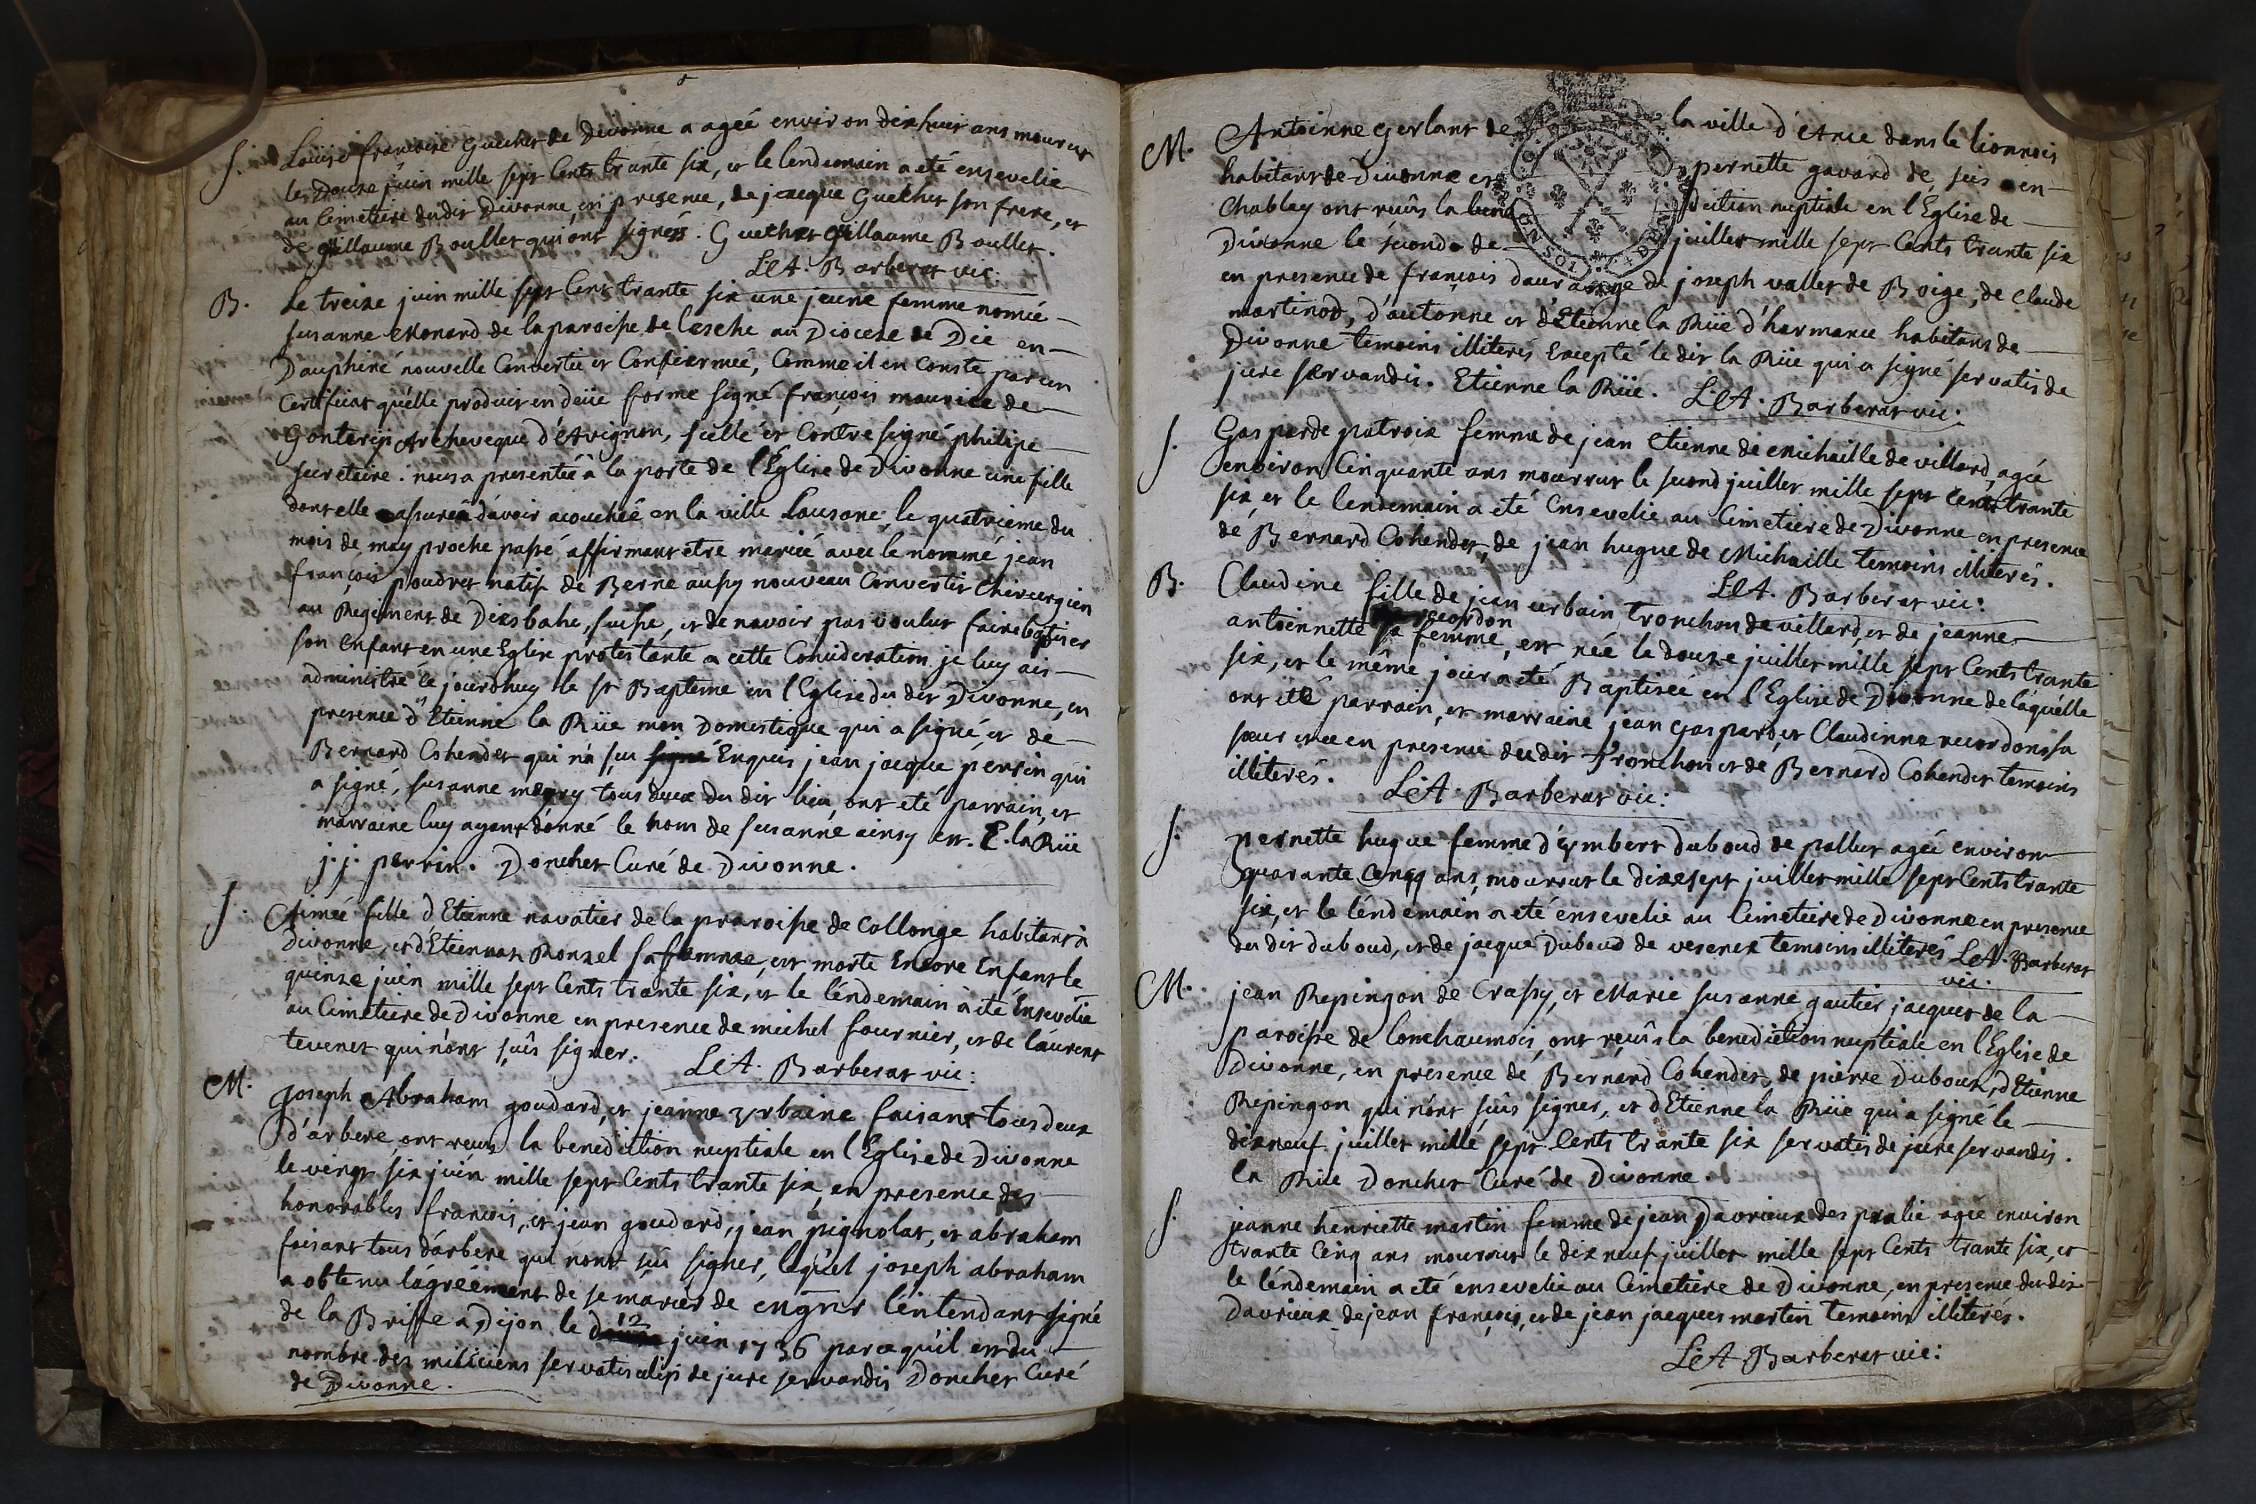 S. Louise francoise Guechet de Divonne a ageé environ dixhuit ans mourut
le Douze juin mille sept Cents trante six, et le lendemain a eté ensevelie
au Cimetiere dudit Divonne, en presence, de jacque Guechet son frere, et
de guillaume Boullet qui ont signés. Guechet guillaume Boullet.
L.A. Barberat vic:
B. Le treize juin mille sept Cent trante six une jeune femme nomée
susanne Monard de la paroisse de lesche au Diocese de Die en
Dauphiné nouvelle Convertie et Confiermeé, Comme il en Conste par un
Certificat qu'elle produit en deüe forme signé françois maurice de
Gonterij Archeveque d'Avignon, sellé et Contre signé philipe
secretaire. nous a presenteé à la porte de l'Eglise de Divonne une fille
dont elle assureà d'avoir acoucheé en la ville Lausane, le quatrieme du
mois de may proche passé affirmant etre marieé avec le nommé jean
françois poudret natif de Berne aussy nouveau Convertit Chirurgien
au Regiment de Diesbahe, suisse, et de navoir pas voulut faire baptiser
son enfant en une Eglise protestante a cette Consideration je luy ais
administré ce jourdhuy le st Bapteme en l'Eglise du dit Divonne, en
presence d'Etienne la Rüe mon Domestique qui a signé, et de
Bernard Cohendet qui n'a seu Enquis jean jacque perrin qui
a signé, susanne mégny tous deux du dit lieu ont eté parrain, et
marraine luy ayant donné le nom de susanne ainsy est. E. la Rüe
j. j. perrin. Donchet Curé de Divonne.
S. Aimeé fille d'Etienne navatier de la praroisse de Collonge habitant à
Divonne, et d'Etiennaz Ronzel sa femmae, est morte Encore Enfant le
quinze juin mille sept Cents trante six, et le léndemain à eté Ensevelie
au Cimetiere de Divonne en presence de michel fournier, et de laurent
tevenet qui n'ont sçûs signer. L.A. Barberat vic:
M. Joseph Abraham goudard, et jeanne urbaine faisant tous deux
d'arbere, ont reçus la benediction nuptiale en l'Eglise de Divonne
le vingt six juin mille sept Cents trante six, en presence des
honorables francois, et jean goudard, jean pignolat, et abraham
faisant tous d'arbere qui n'ont sçû signer, lequel joseph abraham
a obtenu l'agréement de se marier de l'intendant signé
de la Briffe a Dijon le 12 juin 1736 parce qu'il est du
nombre des miliciens servatis aliis de jure servandis Donchet Curé
de Divonne.
M. Antoinne gerlant de la ville d'Ance dans le lionnois
habitant de Divonne et pernette gavard de seis en
Chablay ont reçûs la bene diction nuptiale en l'Eglise de
Divonne le second de juillet mille sept Cents trante six
en presence de françois daurange de joseph vallet de Boige, de Claude
martinod, d'autonne et d'Etienne la Rüe d'harmance habitans de
Divonne temoins illiterés Excepté le dit la Rüe qui a signé servatis de
jure servandis. Etienne la Rüe. L.A. Barberat vic:
S. Gasparde patroix femme de jean Etienne de michaille de villard, ageé
environ Cinquante ans mourrut le second juillet mille sept Cents trante
six, et le lendemain a eté Ensevelie au Cimetiere de Divonne en presence
de Bernard Cohendet, de jean hugue de Michaille temoins illiterés.
L.A. Barberat vic:
B. Claudine fille de jean urbain tronchon de villard, et de jeanne
recordon
antoinnette sa femme, est née le douze juillet mille sept Cents trante
six, et le même jour a eté Baptiseé en l'Eglise de Divonne de laquelle
ont été parrain, et marraine jean gaspard, et Claudinne recordon sa
sœur et ce en presence du dit tronchon et de Bernard Cohendet temoins
illiterés. L.A. Barberat vic:
S. pernette hugue femme d'ymbert Duboud de pallut ageé environ
quarante Cinq ans, mourrut le dixesept juillet mille sept Cents trante
six, et le lendemain a eté ensevelie au Cimetiere de Divonne en presence
du dit duboud, et de jacque Duboud de vesenex temoins illiterés L.A. Barberat
vic.
M. jean Repingon de Crassy, et Marie susanne gautier jacquet de la
paroisse de lonchaumois, ont reçûs la benediction nuptiale en l'Eglise de
Divonne, en presence de Bernard Cohendet, de pierre Duboux, d'Etienne
Repingon qui n'ont sçûs signer, et d'Etienne la Rüe qui a signé le
dixneuf juillet mille sept Cents trante six servatis de jure servandis.
la Rüe Donchet Curé de Divonne.
S. jeanne henriette martin femme de jean Davrieux des pralie ageé environ
trante Cinq ans mourrut le dix neuf juillet mille sept Cents trante six, et
le léndemain a eté ensevelie au Cimetiere de Divonne, en presence du dit
Davrieux de jean françois, et de jean jacques martin temoins illiterés.
L.A. Barberat vic: